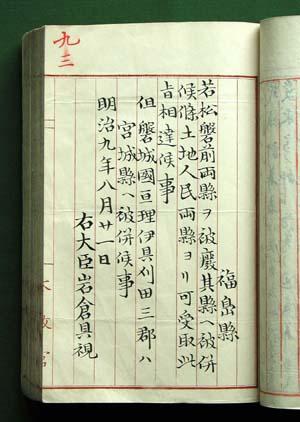 九三
福島縣
若松磐前兩縣ヲ被廢其縣ヘ被併
候條土地人民兩縣ヨリ可受取此
旨相達候事
但磐城國亘理伊具刈田三郡ハ
宮城縣ヘ被併候事
明治九年八月廿一日
右大臣岩倉具視
太政官